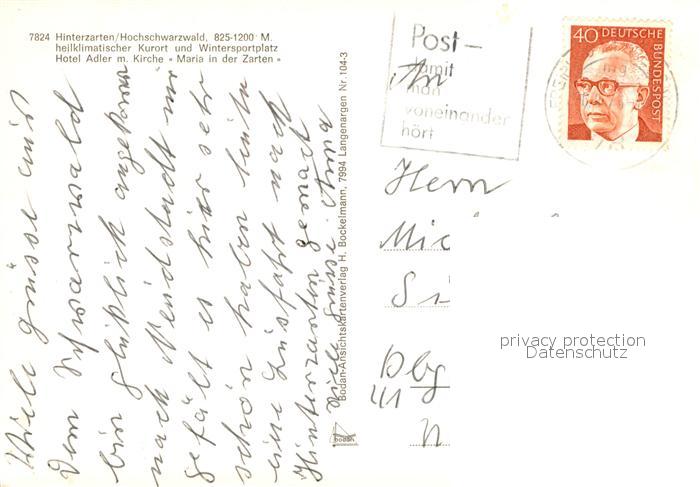 7824 Hinterzarten/Hochschwarzwald, 825-1200 M.
heilklimatischer Kurort und Wintersportplatz
Hotel Adler m. Kirche » Maria in der Zarten «
Viele Grüsse aus
dem Schwarzwald
bin glücklich angekommen
nach Neustadt mir
gefällt es hier sehr
schön haben heute
eine Ausfahrt nach
Hinterzarten gemacht
viele Grüsse Anna
Bodan-Ansichtskartenverlag H. Bockelmann, 7994 Langenargen Nr. 104-3
bodan
Post-
damit
man
voneinander
hört
40 DEUTSCHE
BUNDESPOST
An
Herrn
Mic
Si
Dbg
41
N
privacy protection
Datenschutz